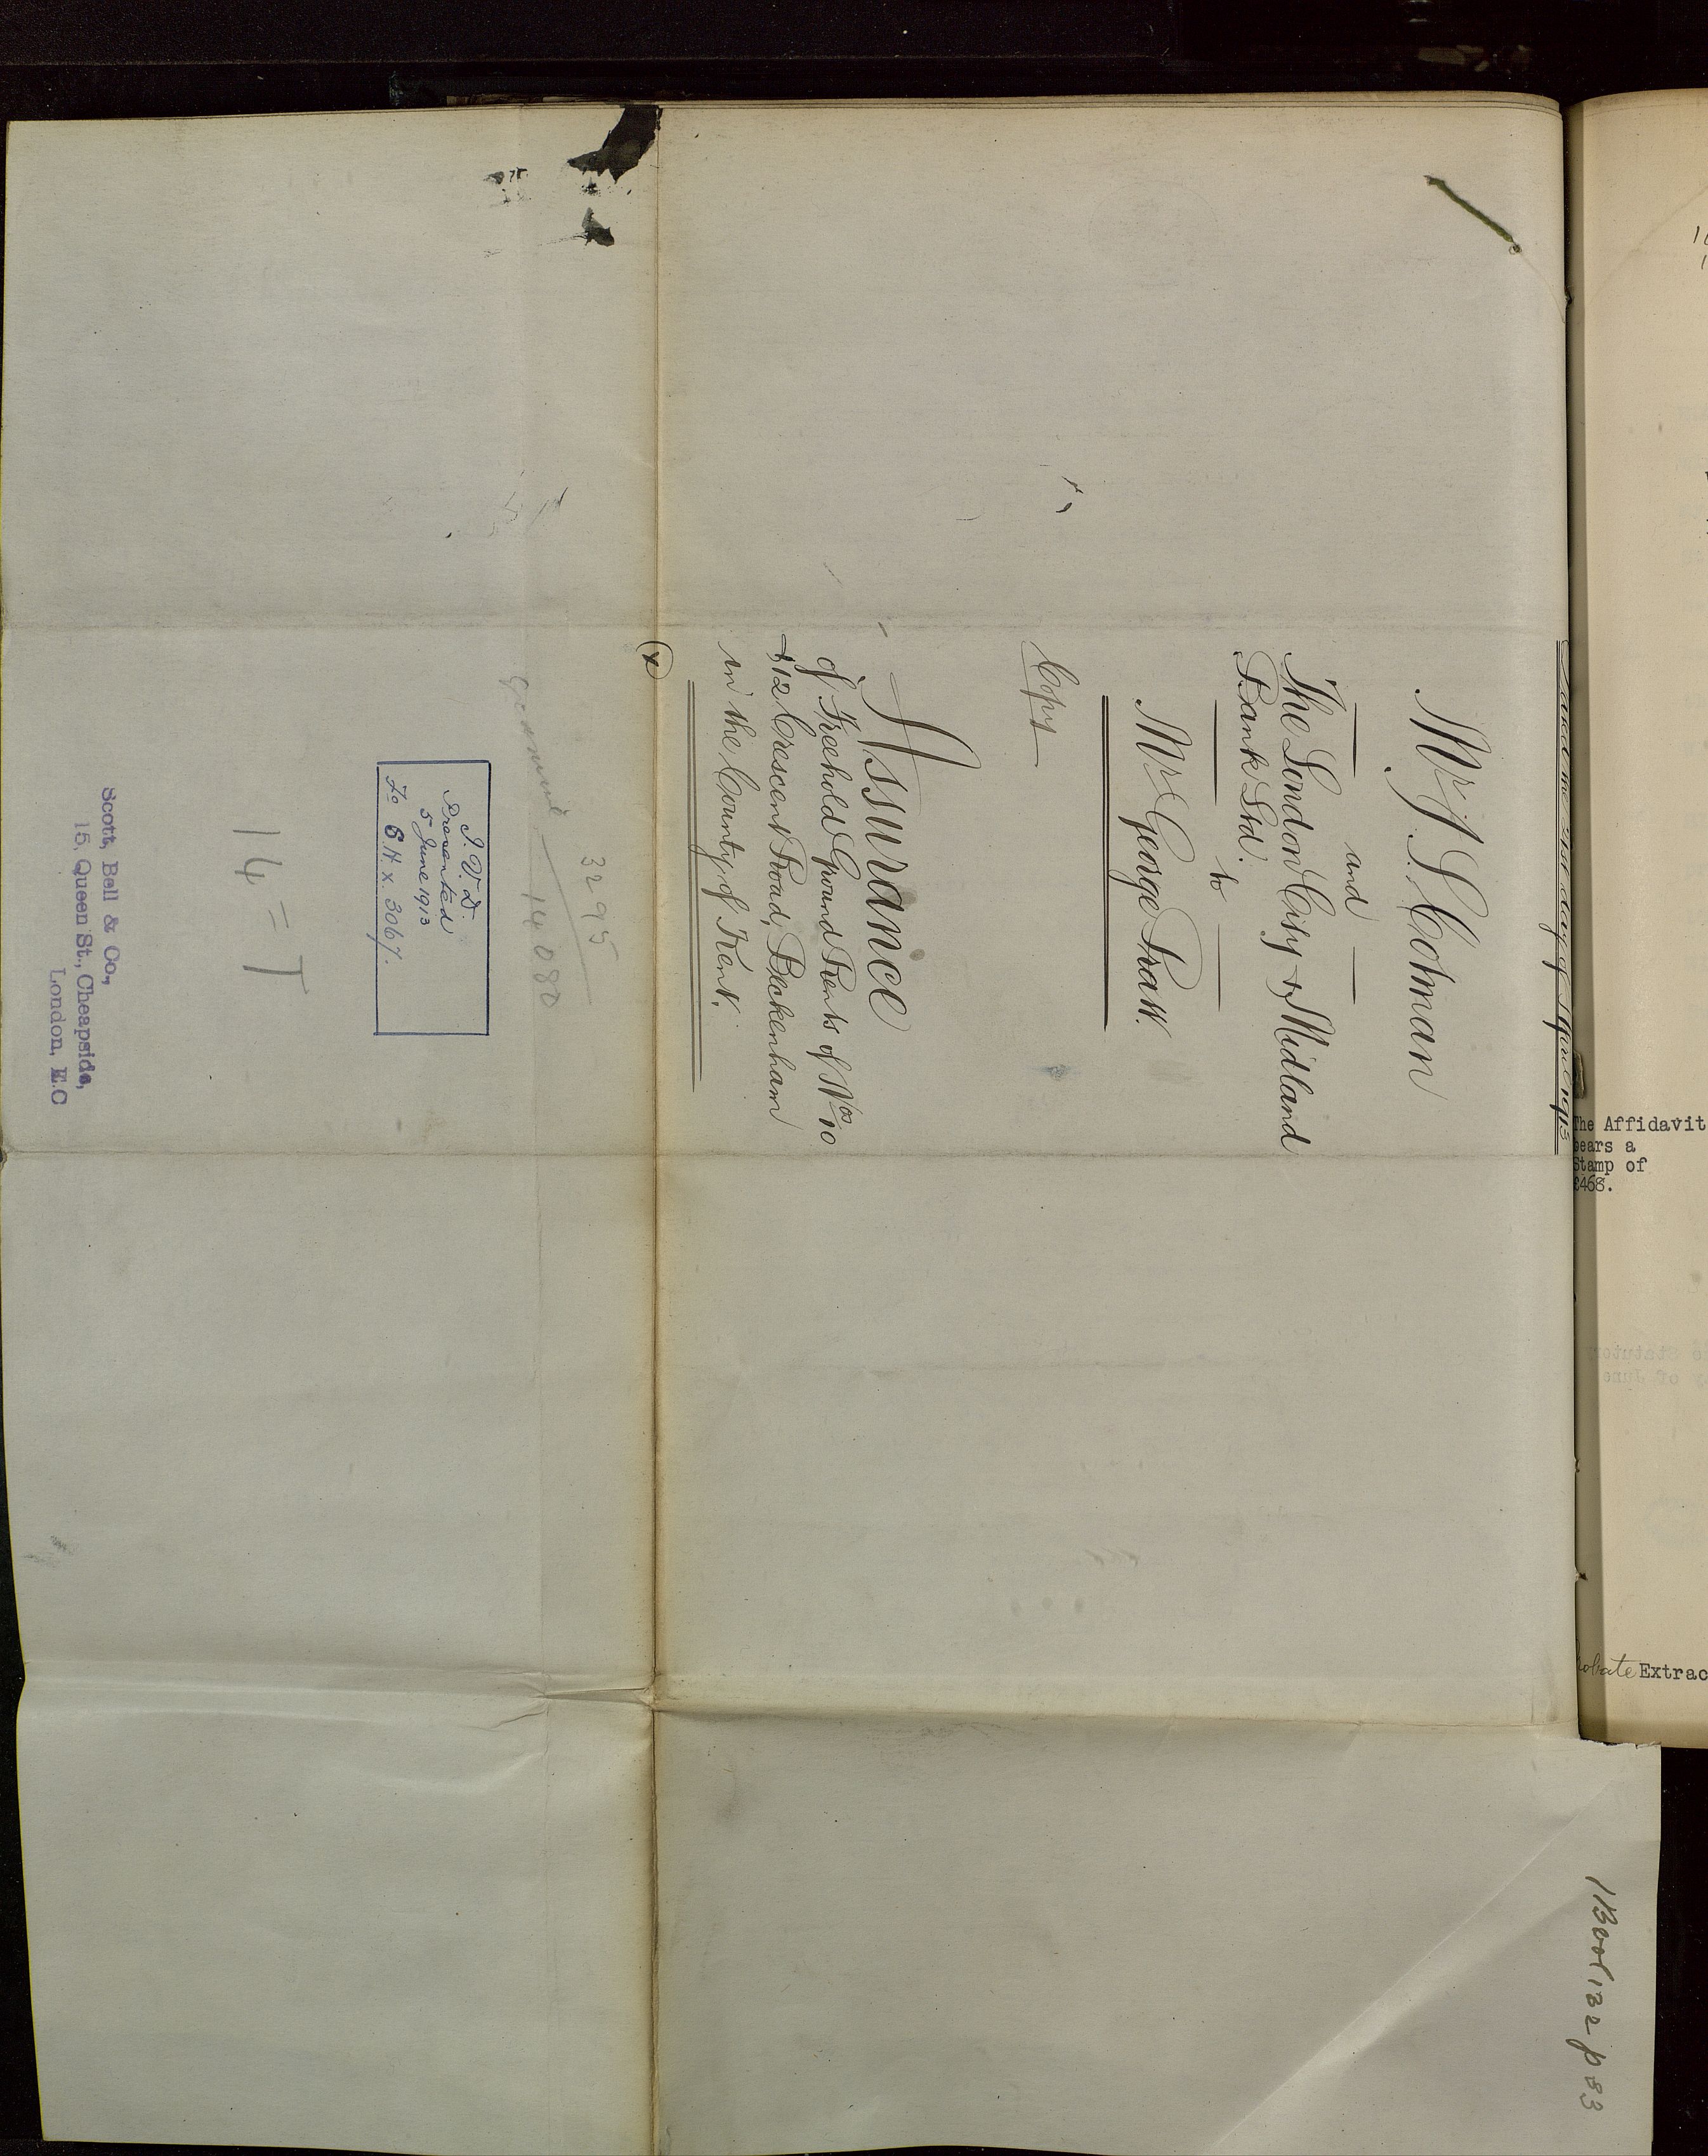 Dated the 21st day of April 1913
Mr J. S. Colman
and
The London City & Midland
Bank Ltd.
to
Mr George Pratt.
Copy
Assurance
of Freehold Ground Rents of Nos 10
& 12 Crescent Road, Beckenham
in the County of Kent.
3295
14080
I. V. D.
Presented
5 June 1913
Fo E.H.X. 3067.
14 = T
Scott, Bell & Co.,
15, Queen St., Cheapside,
London, E.C
The Affidavit
bears a
Stamp of
£468.
Probate Extrac
1 Book 132 p 83